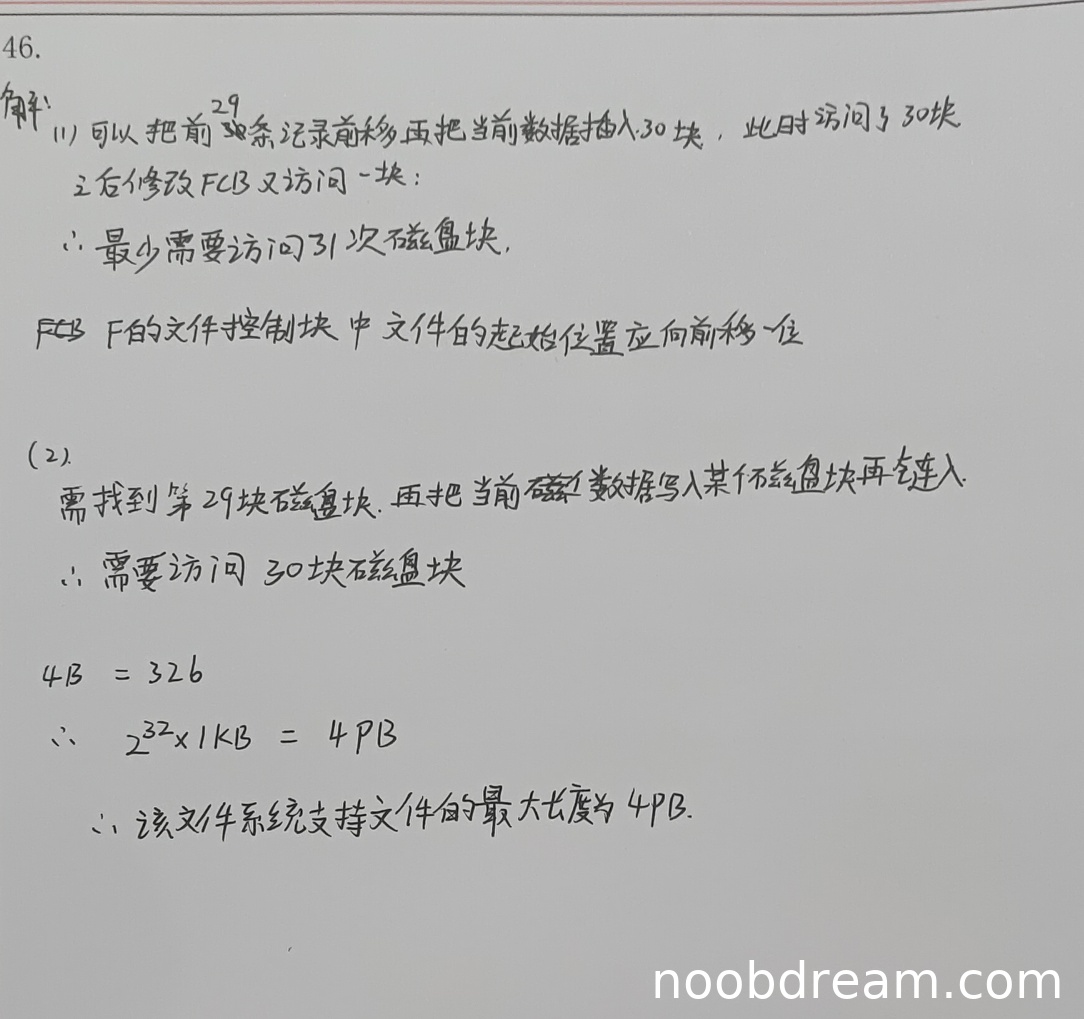 46.
解:
(1) 可以把前29条记录前移再把当前数据插入30块, 此时访问了30块
之后修改FCB又访问一块;
∴ 最少需要访问31次磁盘块.
F的文件控制块中文件的起始位置应向前移一位
(2).
需找到第29块磁盘块. 再把当前数据写入某个磁盘块再链入.
∴ 需要访问 30块磁盘块
4B = 32b
∴ 2³²×1KB = 4PB
∴ 该文件系统支持文件的最大长度为4PB.
noobdream.com